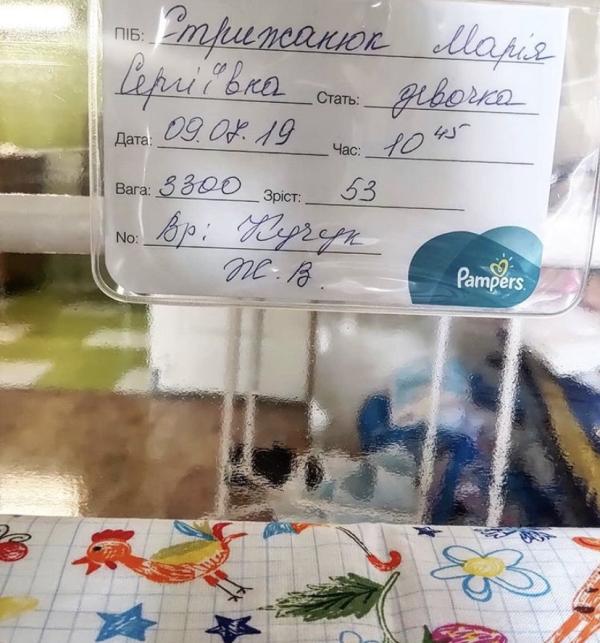 ПІБ: Стрижанюк Марія
Сергіївна Стать: девочка
Дата: 09.07.19 Час: 10 45
Вага: 3300 Зріст: 53
No: Вр: Кучук
Ж. В.
Pampers